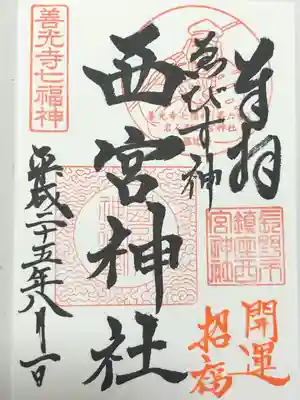 奉拝
ゑびす神
西宮神社
平成二十五年八月一日
善光寺七福神
長野市
鎮座西
宮神社
開運
招福